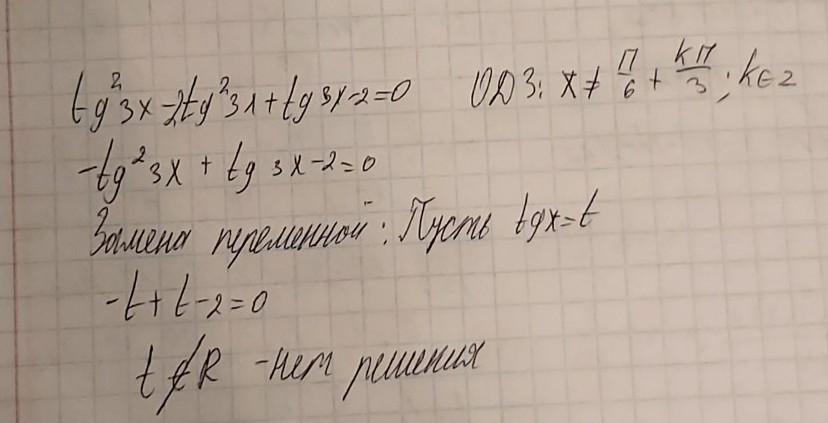 tg²3x-2tg²3x+tg3x-2=0 ОДЗ: x≠П/6+кП/3; k∈z
-tg²3x+tg3x-2=0
Замена переменной: Пусть tgx=t
-t+t-2=0
t∉R -нет решения